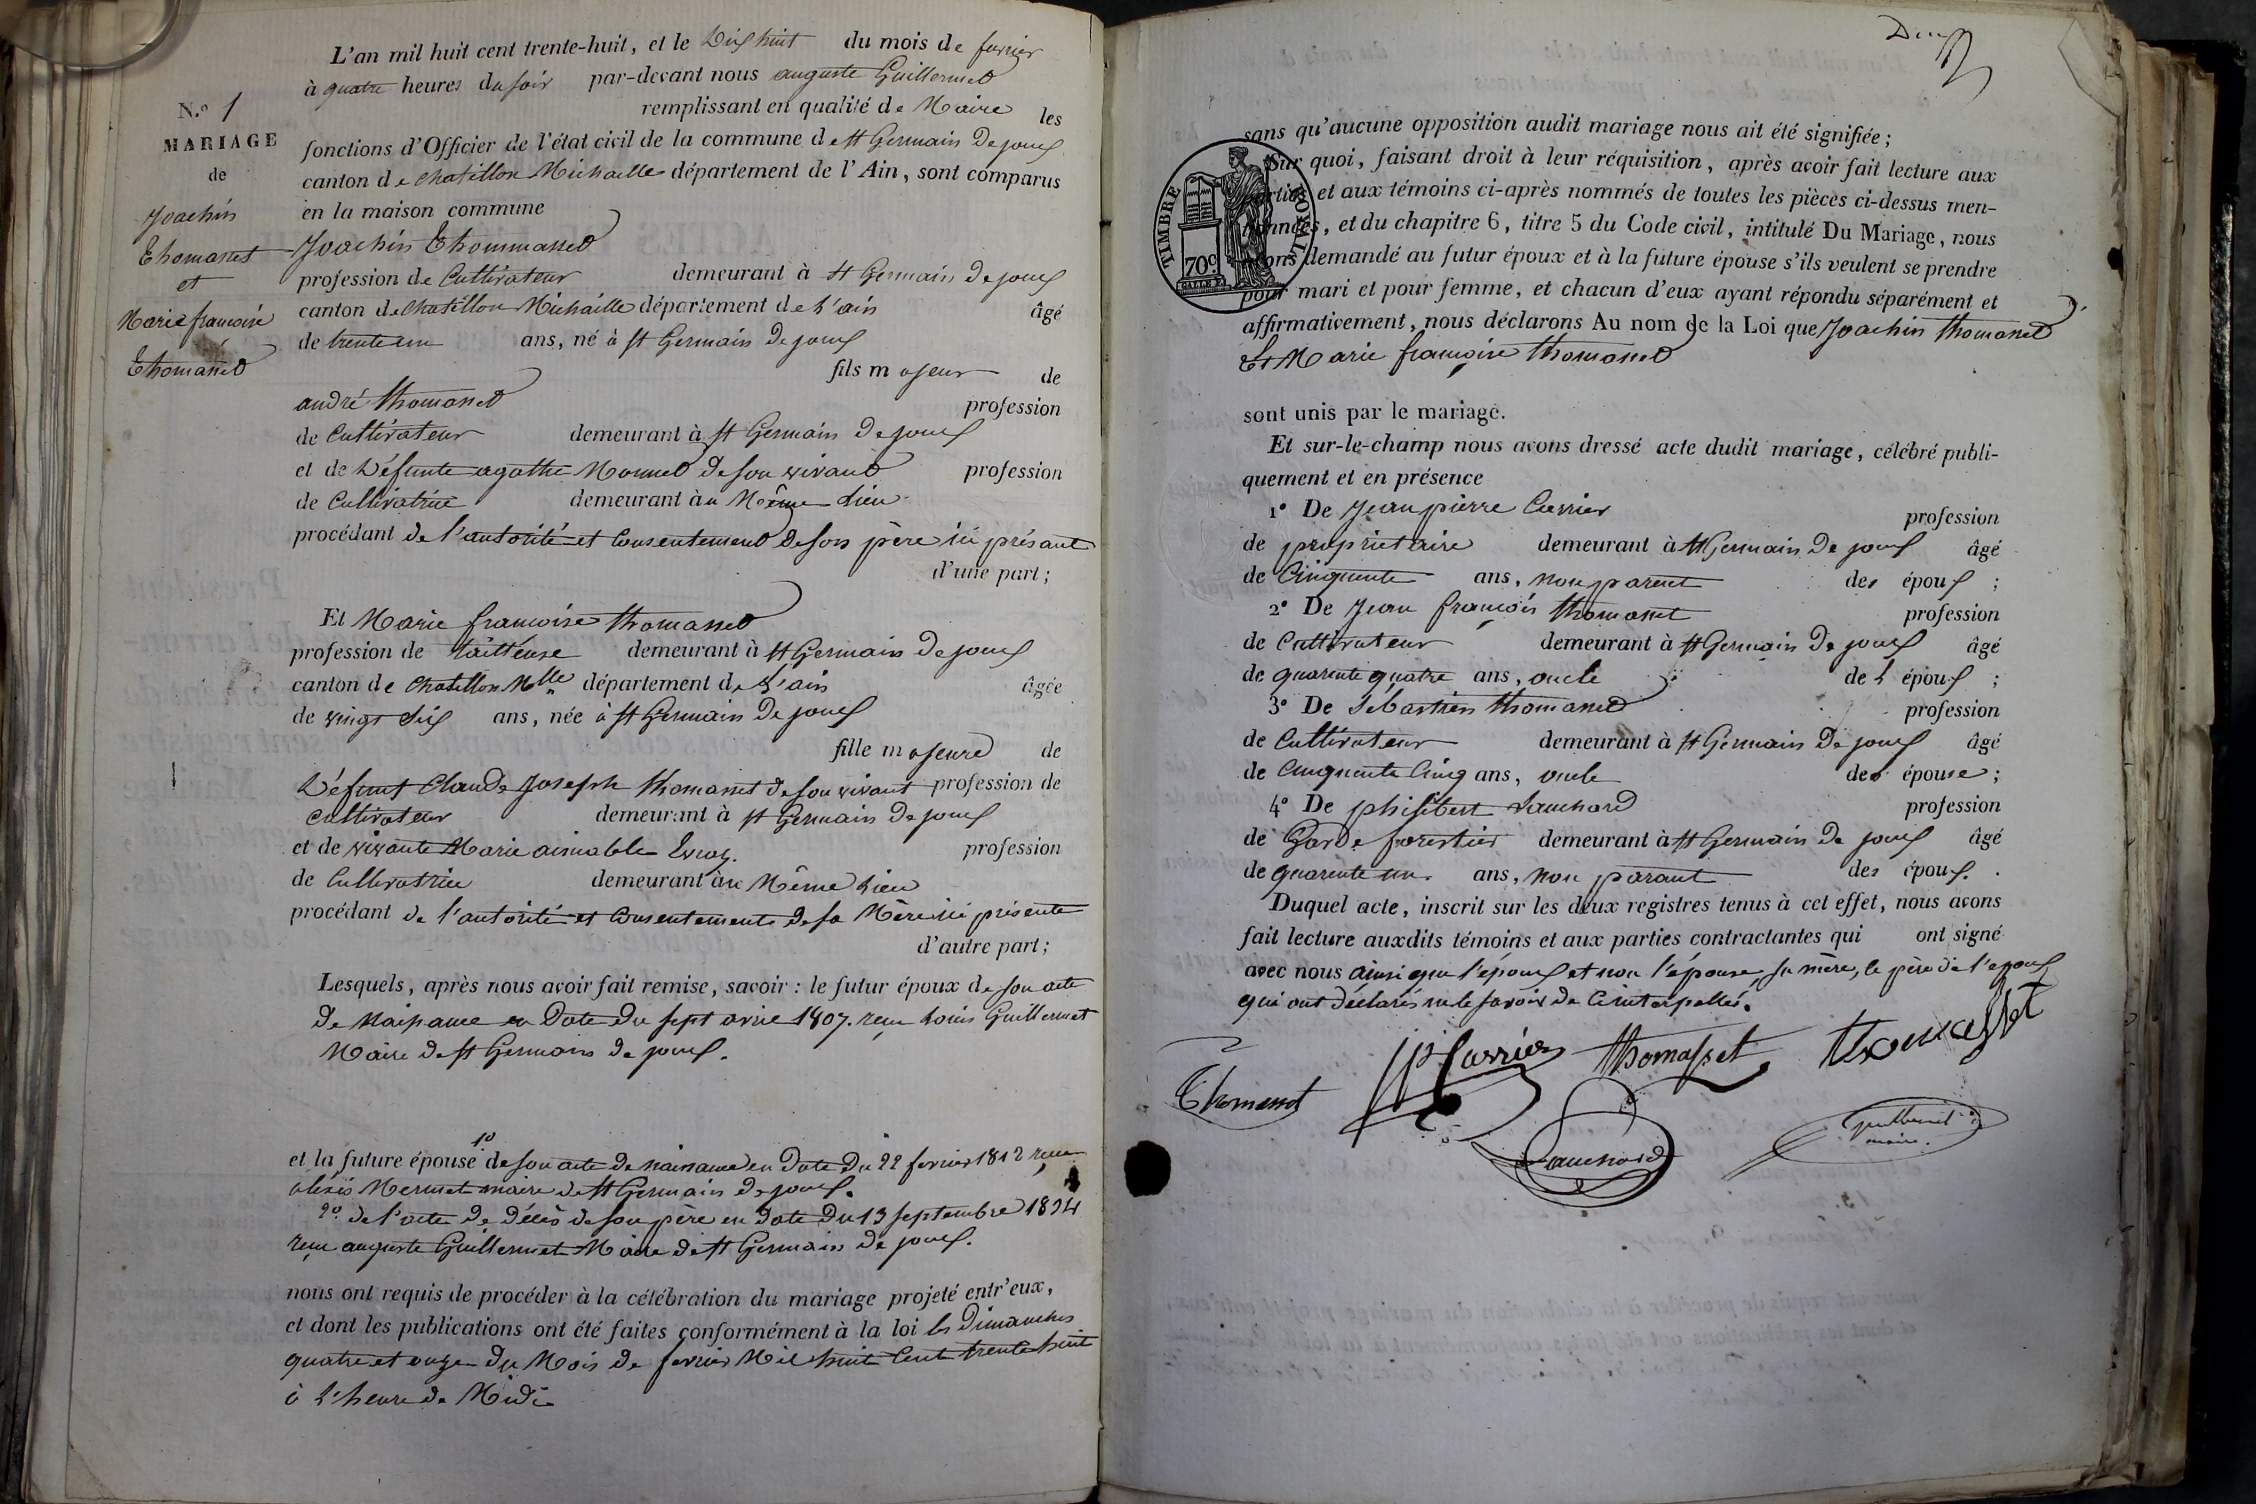 L'an mil huit cent trente-huit, et le Dix huit du mois de fevrier
à quatre heures du soir par-devant nous auguste Guillermet
remplissant en qualité de Maire les
N.º 1
MARIAGE
de
Joachin
Thomasset
et
Marie françoise
Thomasset
fonctions d'Officier de l'état civil de la commune de St Germain De joux
canton de chatillon Michaille département de l'Ain, sont comparus
en la maison commune
Joachin Thommasset
profession de Cultivateur demeurant à St Germain De joux
canton de chatillon Michaille département de L'ain âgé
de trente un ans, né à St Germain De joux
fils majeur de
andré thomasset profession
de Cultivateur demeurant à St Germain De joux
et de Défunte agathe Monnet de son vivant profession
de Cultivatrice demeurant au Même Lieu
procédant de l'autorité et Consentement de son père ici présant
d'une part;
Et Marie françoise thomasset
profession de demeurant à St Germain De joux
canton de chatillon Mlle département de L'ain âgée
de vingt Six ans, née à St Germain De joux
fille majeure de
Défunt Claude Joseph thomasset de son vivant profession de
Cultivateur demeurant à St Germain De joux
et de vivante Marie aimable profession
de Cultivatrice demeurant au Même Lieu
procédant de l'autorité et Consentement de sa Mère ici présente
d'autre part;
Lesquels, après nous avoir fait remise, savoir : le futur époux de son acte
de Naissance en Date du sept 1807. reçu Louis Guillermet
Maire de St Germain de joux.
et la future épouse 1º de son acte de naissance en Date du 22 fevrier 1812 reçu
alexis Mermet maire de St Germain de joux.
2º de l'acte de Décès de son père en Date du 13 septembre 1834
reçu auguste Guillermet Maire de St Germain de joux.
nous ont requis de procéder à la célébration du mariage projeté entr'eux,
et dont les publications ont été faites conformément à la loi les Dimanches
quatre et onze du Mois de fevrier Mil huit Cent trente huit
à L'heure de Midi
sans qu'aucune opposition audit mariage nous ait été signifiée;
TIMBRE ROYAL
70c
Sur quoi, faisant droit à leur réquisition, après avoir fait lecture aux
parties et aux témoins ci-après nommés de toutes les pièces ci-dessus men-
tionnées, et du chapitre 6, titre 5 du Code civil, intitulé Du Mariage, nous
avons demandé au futur époux et à la future épouse s'ils veulent se prendre
pour mari et pour femme, et chacun d'eux ayant répondu séparément et
affirmativement, nous déclarons Au nom de la Loi que Joachin thomasset
Et Marie françoise thomasset
sont unis par le mariage.
Et sur-le-champ nous avons dressé acte dudit mariage, célébré publi-
quement et en présence
1º De Jean pierre Carrier profession
de proprietaire demeurant à St Germain De joux âgé
de Cinquente ans, non parent des époux ;
2º De Jean françois thomasset profession
de Cultivateur demeurant à St Germain De joux âgé
de quarente quatre ans, oncle de L époux ;
3º De Sebastien thomasset profession
de Cultivateur demeurant à St Germain De joux âgé
de Cinquente Cinq ans, oncle de épouse ;
4º De philibert Lanchard profession
de Garde forestier demeurant à St Germain De joux âgé
de quarente un. ans, non parant des époux.
Duquel acte, inscrit sur les deux registres tenus à cet effet, nous avons
fait lecture auxdits témoins et aux parties contractantes qui ont signé
avec nous ainsi que l'époux et non l'épouse, sa mère, le père de l'epoux
qui ont déclarés ne le savoir de Ce interpellés.
Thomasset JP Carrier thomasset thomasset
Lanchard
Guillermet
maire.